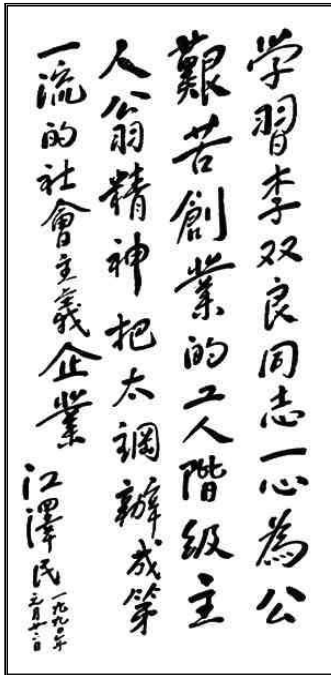 学習李双良同志一心為公
艱苦創業的工人階級主
人翁精神把太鋼辦成第
一流的社會主義企業
江澤民
一九九〇年
元月廿二日